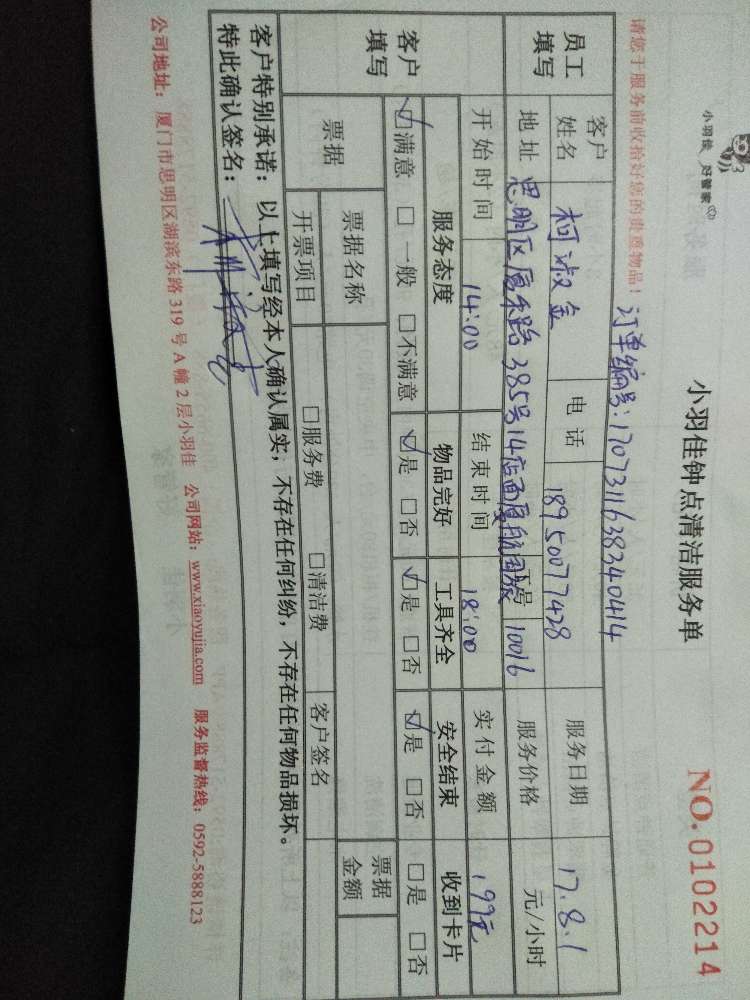 小羽佳 好管家
小羽佳钟点清洁服务单
NO.0102214
请您于服务前收拾好您的贵重物品！
订单编号：1707311638340414
员工填写
客户姓名 柯淑金 电话 18950077428 服务日期 17.8.1
地址 思明区厦禾路385号14店面 工号 10016 服务价格 元/小时
开始时间 14:00 结束时间 18:00 实付金额 199元
客户填写
服务态度 物品完好 工具齐全 安全结束 收到卡片
☑满意 □一般 □不满意 ☑是 □否 ☑是 □否 ☑是 □否 □是 □否
票据 票据名称 票据金额
开票项目 □服务费 □清洁费 客户签名
客户特别承诺：以上填写经本人确认属实，不存在任何纠纷，不存在任何物品损坏。
特此确认签名：
公司地址：厦门市思明区湖滨东路319号A幢2层小羽佳 公司网站：www.xiaoyujia.com 服务监督热线：0592-5888123